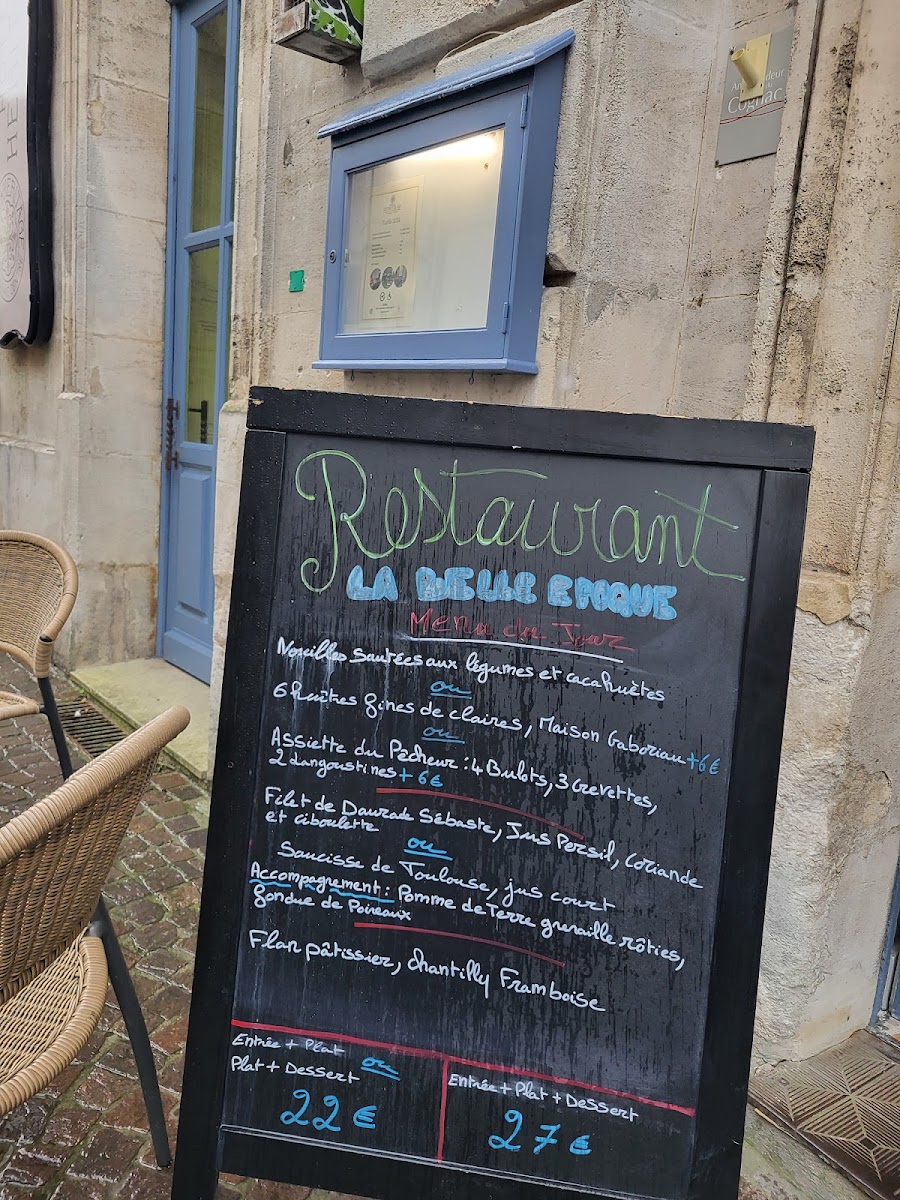 Restaurant
LA BELLE EPOQUE
Menu du Jour
Nouilles Sautées aux légumes et cacahuètes
ou
6 huîtres fines de claires, Maison Gaboriau +6€
ou
Assiette du Pêcheur : 4 Bulots, 3 Crevettes,
2 Langoustines +6€
Filet de Daurade Sébaste, Jus Persil, Coriande
et ciboulette
ou
Saucisse de Toulouse, jus court
Accompagnement : Pomme de Terre grenaille rôties,
fondue de Poireaux
Flan pâtissier, Chantilly Framboise
Entrée + Plat ou
Plat + Dessert
22 €
Entrée + Plat + Dessert
27 €
Cognac